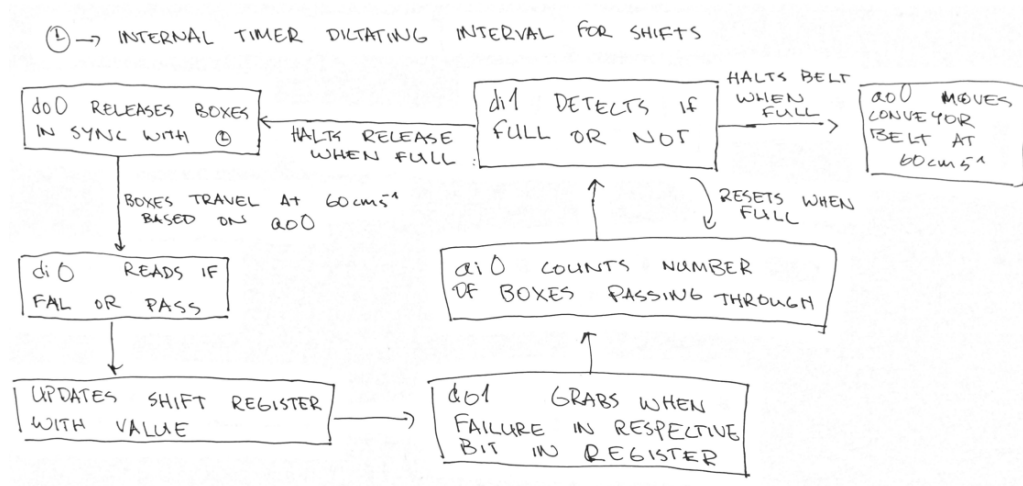 ① → INTERNAL TIMER DICTATING INTERVAL FOR SHIFTS
do0 RELEASES BOXES
IN SYNC WITH ①
HALTS RELEASE
WHEN FULL
di1 DETECTS IF
FULL OR NOT
HALTS BELT
WHEN
FULL
ao0 MOVES
CONVEYOR
BELT AT
60cms⁻¹
BOXES TRAVEL AT 60cms⁻¹
BASED ON ao0
RESETS WHEN
FULL
di0 READS IF
FAIL OR PASS
ai0 COUNTS NUMBER
OF BOXES PASSING THROUGH
UPDATES SHIFT REGISTER
WITH VALUE
do1 GRABS WHEN
FAILURE IN RESPECTIVE
BIT IN REGISTER